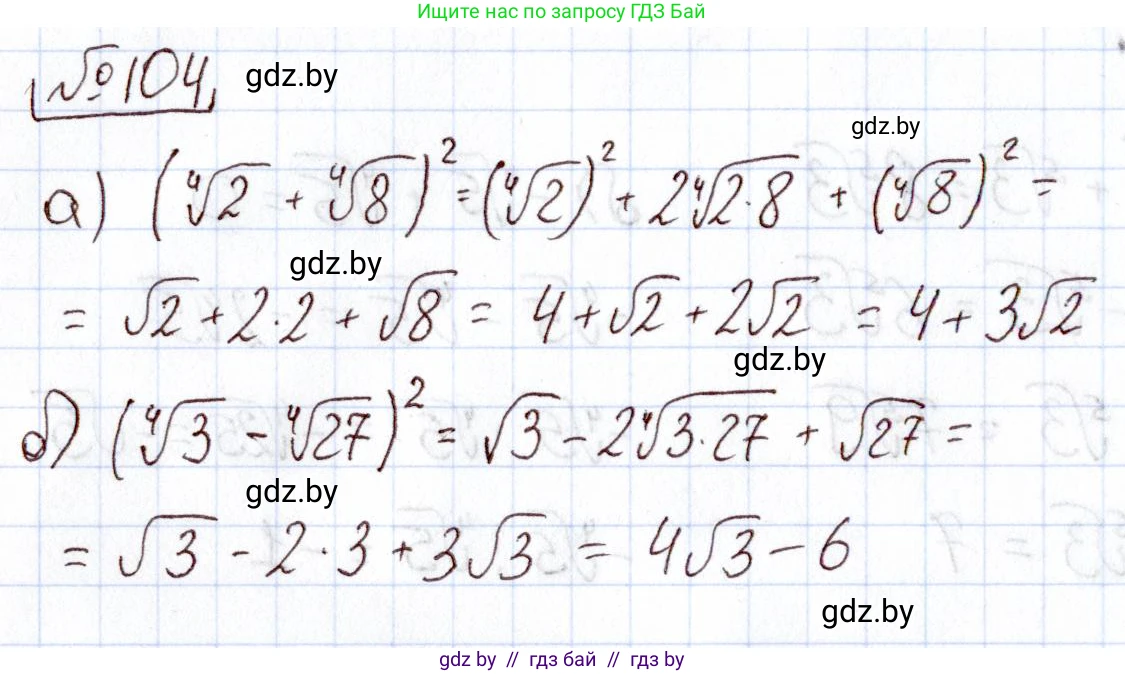 Ищите нас по запросу ГДЗ Бай
№104 gdz.by
gdz.by
а) (∜2 + ∜8)² = (∜2)² + 2∜2·8 + (∜8)² =
gdz.by
= √2 + 2·2 + √8 = 4 + √2 + 2√2 = 4 + 3√2
gdz.by
б) (∜3 - ∜27)² = √3 - 2∜3·27 + √27 =
gdz.by
= √3 - 2·3 + 3√3 = 4√3 - 6
gdz.by
gdz by // гдз бай // гдз by